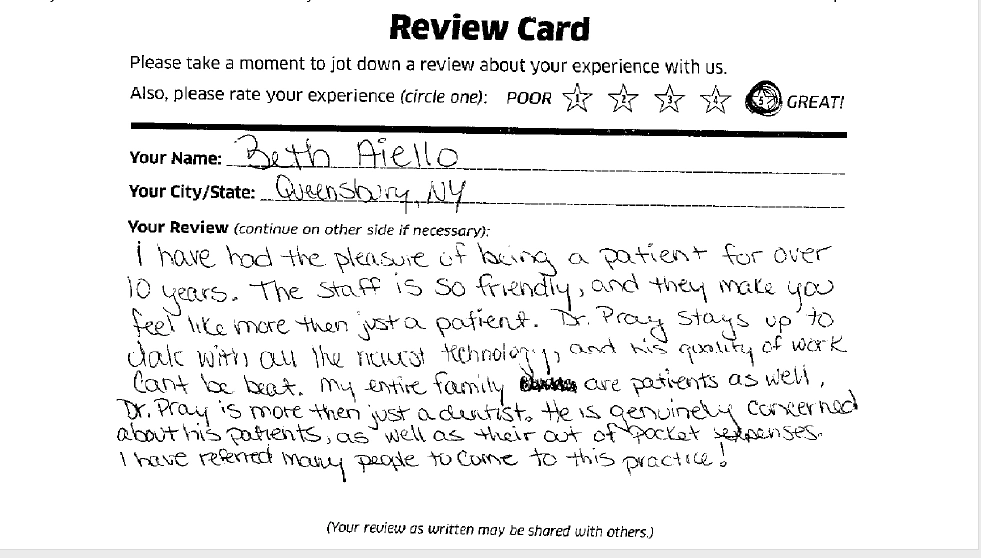 Review Card
Please take a moment to jot down a review about your experience with us.
Also, please rate your experience (circle one): POOR 1 2 3 4 5 GREAT!
Your Name: Beth Aiello
Your City/State: Queensbury, NY
Your Review (continue on other side if necessary):
I have had the pleasure of being a patient for over
10 years. The staff is so friendly, and they make you
feel like more then just a patient. Dr. Pray stays up to
date with all the newest technology, and his quality of work
Cant be beat. My entire family are patients as well.
Dr. Pray is more then just a dentist. He is genuinely concerned
about his patients, as well as their out of pocket expenses.
I have referred many people to come to this practice!
(Your review as written may be shared with others.)